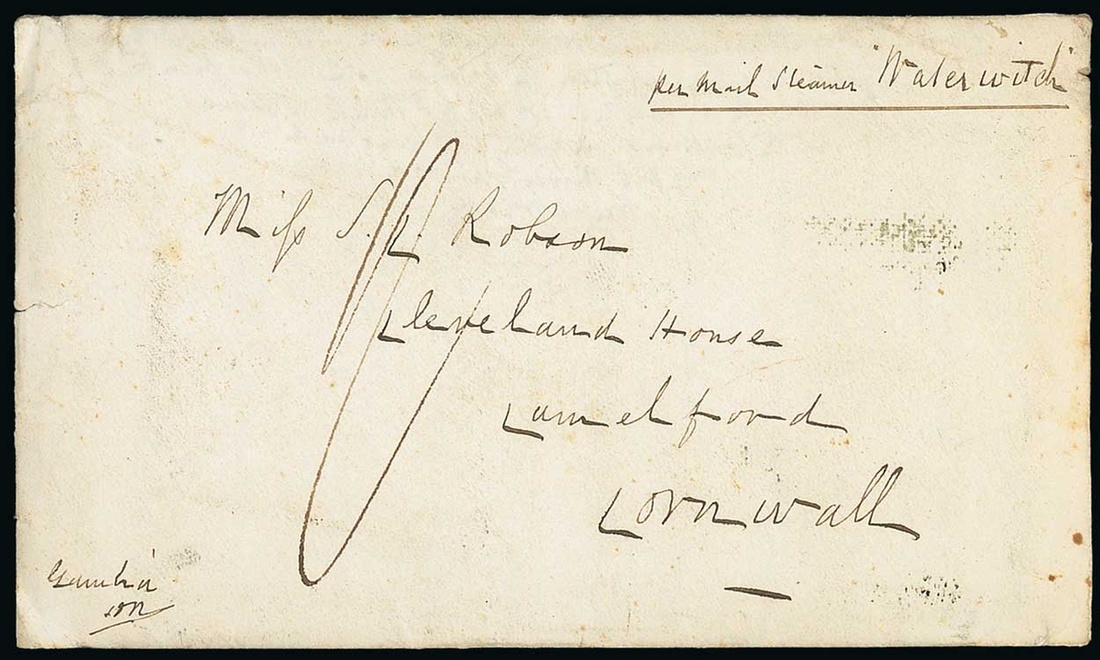 per Mail Steamer "Waterwitch"
Miss S. R Robson
Cleveland House
Camelford
Cornwall
Gambia